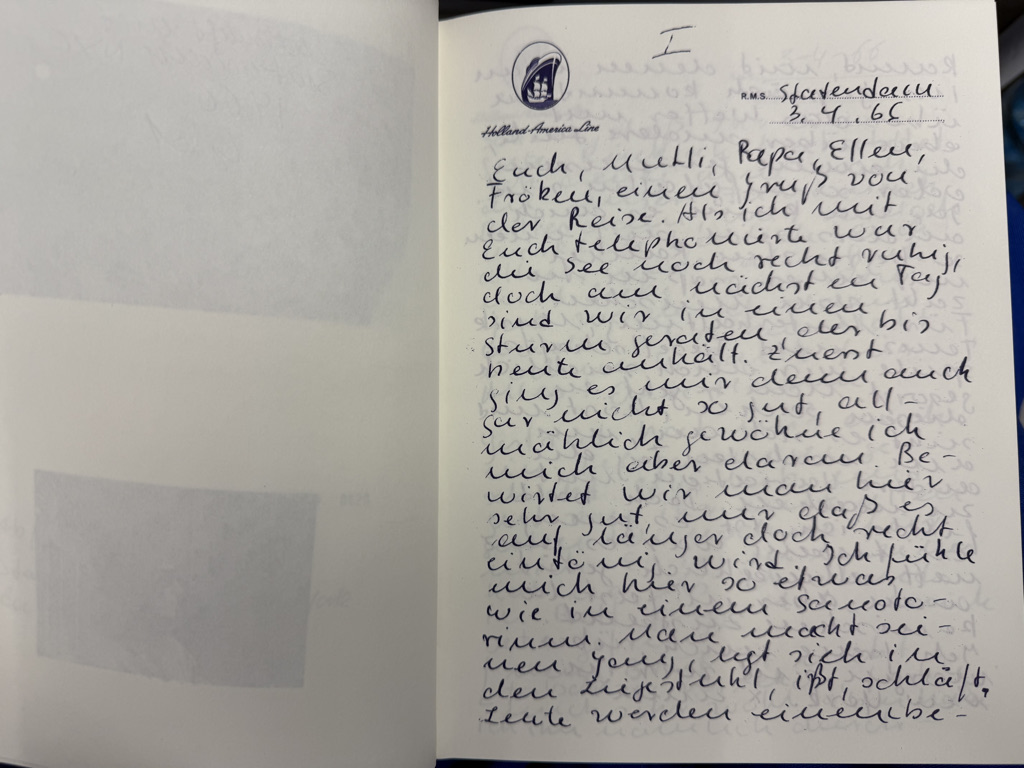 I
R.M.S. Statendam
3.4.65
Holland-America Line
Euch, Mutti, Papa, Ellen,
Fröken, einen Gruß von
der Reise. Als ich mit
Euch telephonierte war
die See noch recht ruhig,
doch am nächsten Tag
sind wir in einen
Sturm geraten, der bis
heute anhält. Zuerst
ging es mir denn auch
gar nicht so gut, all-
mählich gewöhne ich
mich aber daran. Be-
wirtet wir man hier
sehr gut, nur daß es
auf länger doch recht
eintönig wird. Ich fühle
mich hier so etwas
wie in einem Sanato-
rium. Man macht sei-
nen Gang, legt sich in
den Liegestuhl, ißt, schläft.
Leute werden einem be-